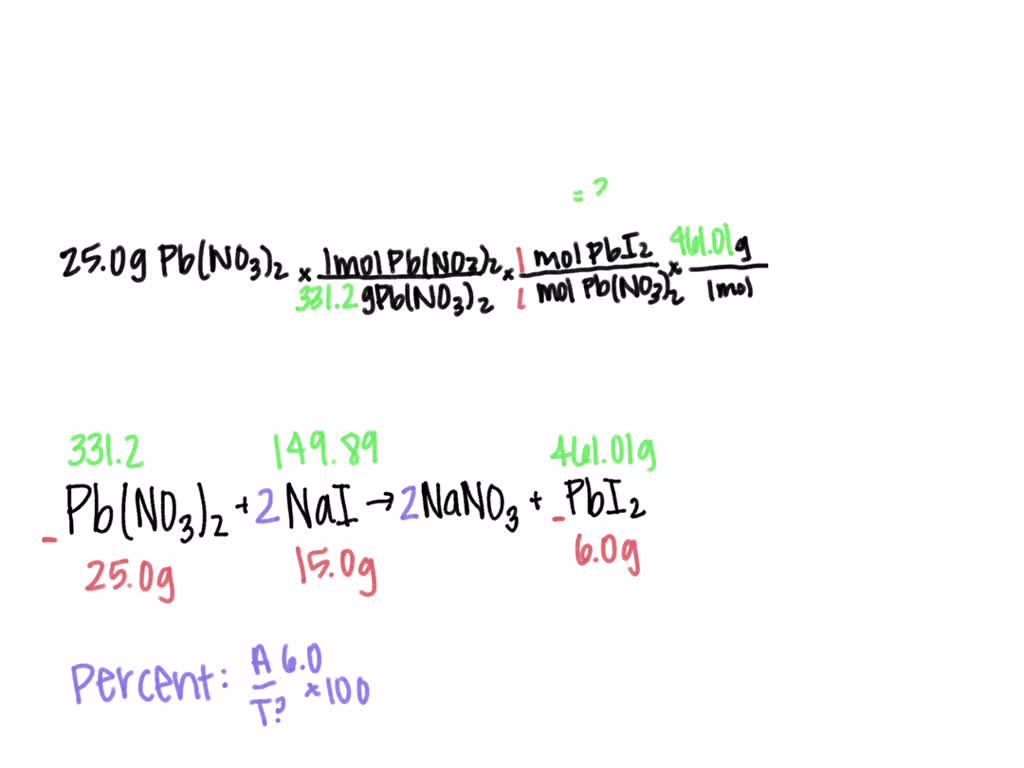 = ?
25.0g Pb(NO3)2 × 1mol Pb(NO3)2 / 331.2 g Pb(NO3)2 × 1 mol PbI2 / 1 mol Pb(NO3)2 × 461.01 g / 1mol
331.2 149.89 461.01g
_ Pb(NO3)2 + 2 NaI → 2 NaNO3 + _ PbI2
25.0g 15.0g 6.0g
Percent: A 6.0 / T? × 100